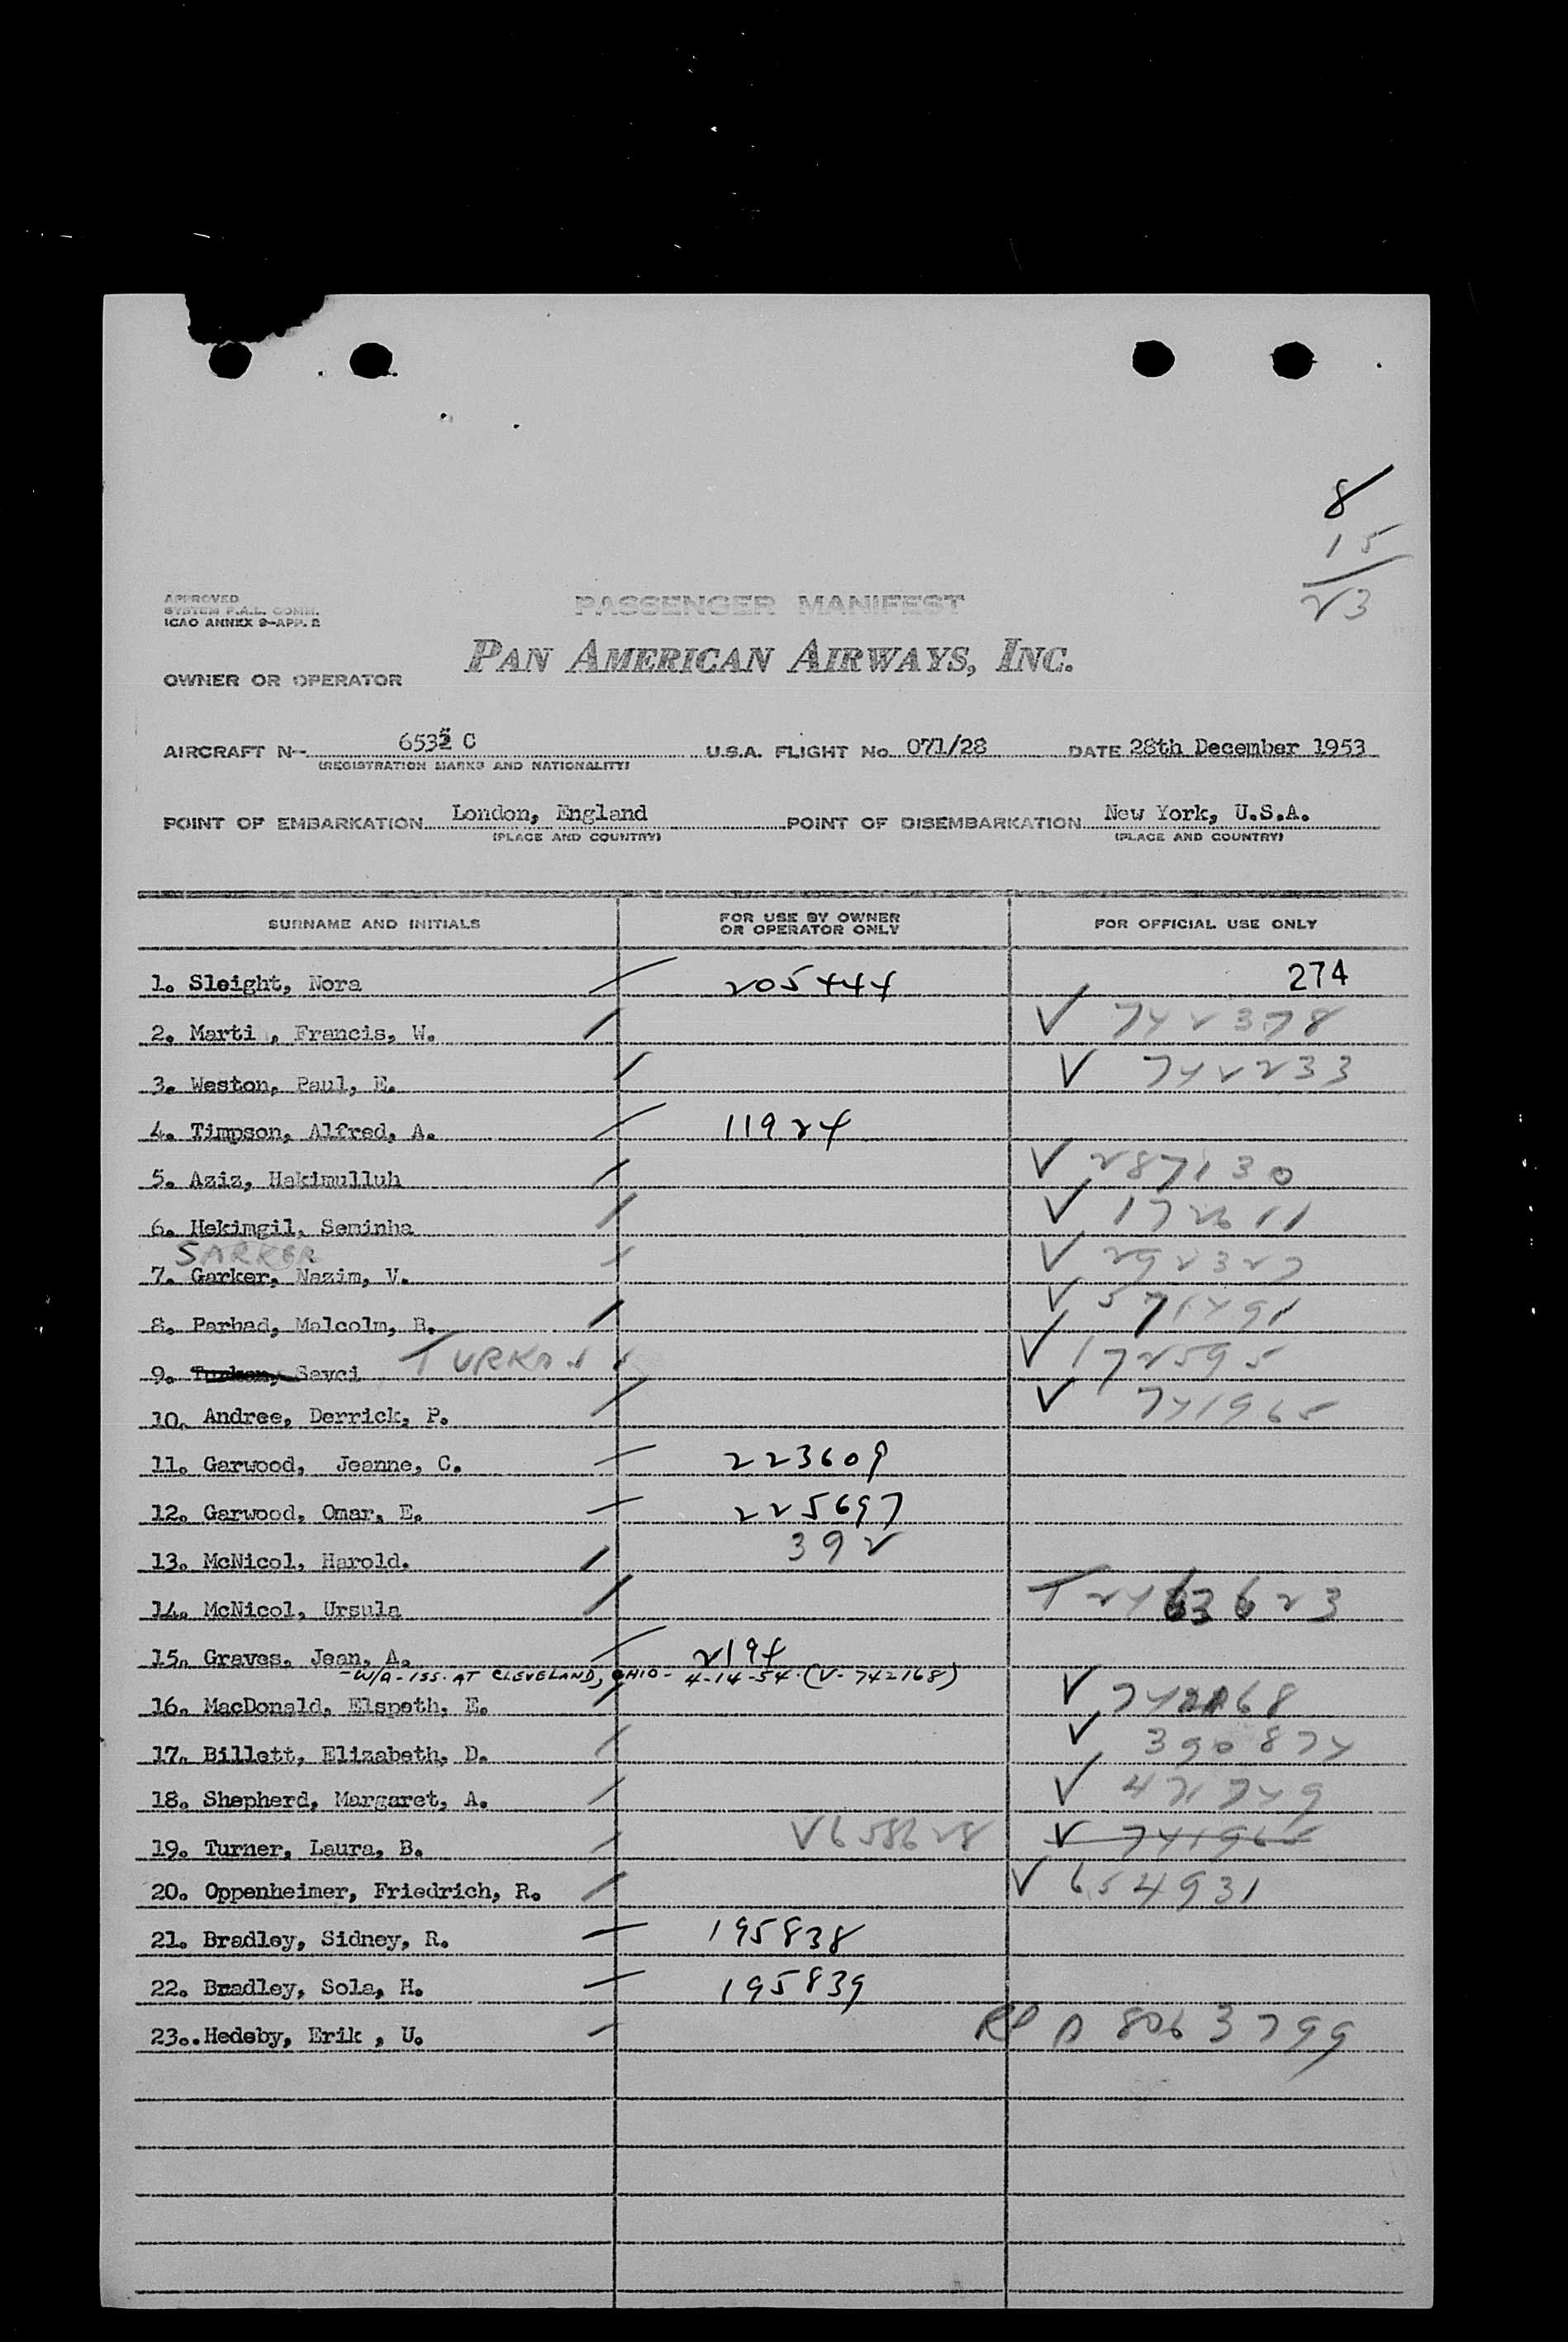 8
15
23
APPROVED
SYSTEM F.A.L. COMM.
ICAO ANNEX 9-APP. 2
PASSENGER MANIFEST
PAN AMERICAN AIRWAYS, INC.
OWNER OR OPERATOR
AIRCRAFT N- 6532 C U.S.A. FLIGHT No. 071/28 DATE 28th December 1953
(REGISTRATION MARKS AND NATIONALITY)
POINT OF EMBARKATION London, England POINT OF DISEMBARKATION New York, U.S.A.
(PLACE AND COUNTRY) (PLACE AND COUNTRY)
SURNAME AND INITIALS FOR USE BY OWNER OR OPERATOR ONLY FOR OFFICIAL USE ONLY
1. Sleight, Nora 205444 274
2. Marti , Francis, W. V 742378
3. Weston, Paul, E. V 742233
4. Timpson, Alfred, A. 11924
5. Aziz, Hakimulluh V 287130
6. Hekimgil, Seminha V 172611
SARKER
7. Garker, Nazim, V. V 292327
8. Parhad, Malcolm, B. V 571491
9. Turken, Savci TURKAN V 172595
10. Andree, Derrick, P. V 741965
11. Garwood, Jeanne, C. 223609
12. Garwood, Omar, E. 225697
13. McNicol, Harold. 392
14. McNicol, Ursula
15. Graves, Jean, A. 2194
-W/A-ISS. AT CLEVELAND, OHIO- 4-14-54. (V-742168)
16. MacDonald, Elspeth, E. V 742168
17. Billett, Elizabeth, D. V 390874
18. Shepherd, Margaret, A. V 471749
19. Turner, Laura, B. V658628 V 741965
20. Oppenheimer, Friedrich, R. V 654931
21. Bradley, Sidney, R. 195838
22. Bradley, Sola, H. 195839
23.. Hedeby, Erik , U. RP A 8063799